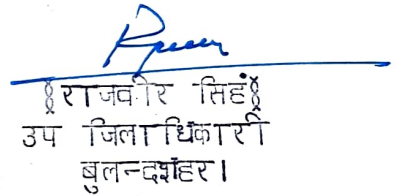 राजवीर सिहं
उप जिलाधिकारी
बुलन्दशहर।